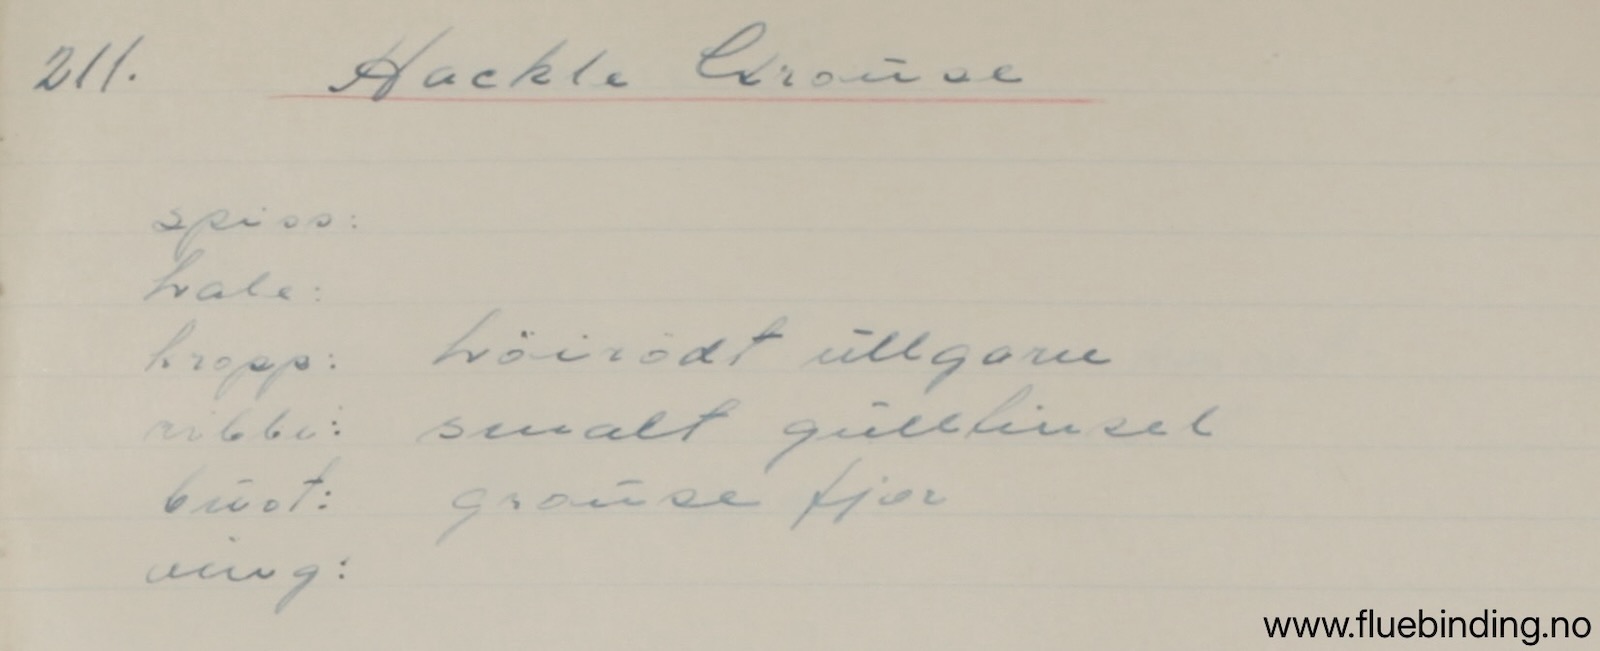 211. Hackle Grouse
spiss:
hale:
kropp: höirödt üllgarn
ribbe: smalt gülltinsel
büst: groüse fjær
ving:
www.fluebinding.no